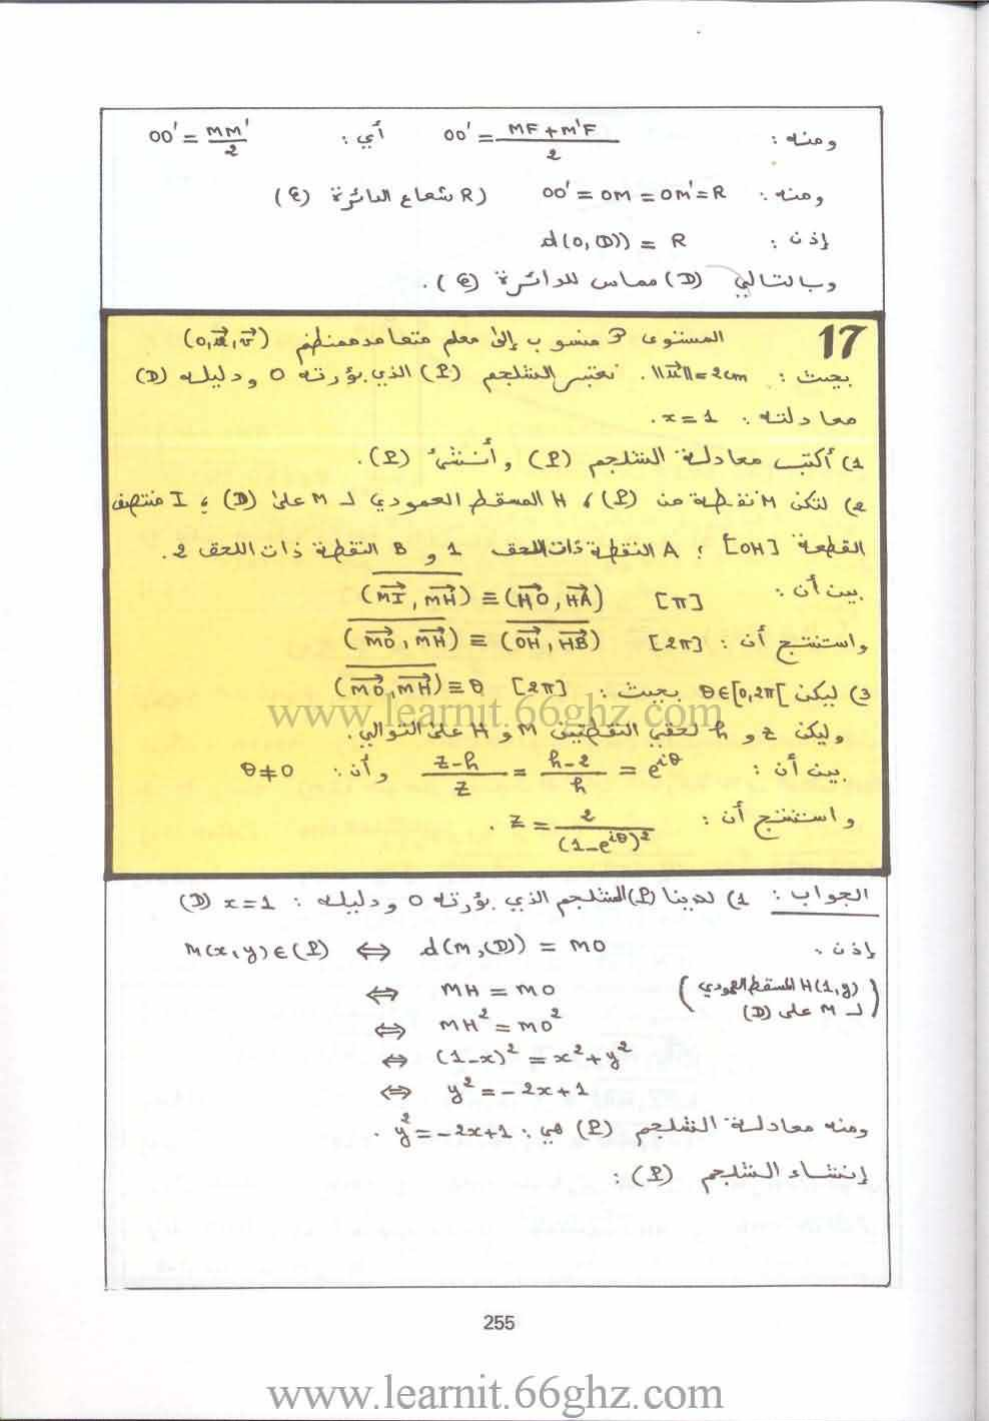 ومنه : OO' = (MF + M'F)/2 أي : OO' = MM'/2
ومنه : OO' = OM = OM' = R (R شعاع الدائرة (C))
إذن : d(O,(D)) = R
وبالتالي (D) مماس للدائرة (C).
17 المستوى P منسوب إلى معلم متعامد ممنظم (O,u⃗,v⃗)
بحيث : ||u⃗|| = 2cm. نعتبر الشلجم (P) الذي بؤرته O ودليله (D)
معادلته : x = 1.
1) أكتب معادلة الشلجم (P) وأنشئ (P).
2) لتكن M نقطة من (P)، H المسقط العمودي لـ M على (D) ؛ I منتصف
القطعة [OH] ؛ A النقطة ذات اللحق 1 و B النقطة ذات اللحق 2.
بين أن : (MI⃗,MH⃗) ≡ (HO⃗,HA⃗) [π]
واستنتج أن : (MO⃗,MH⃗) ≡ (OH⃗,HB⃗) [2π]
3) ليكن θ∈[0,2π[ بحيث : (MO⃗,MH⃗) ≡ θ [2π]
www.learnit.66ghz.com
وليكن z و h لحقي النقطتين M و H على التوالي.
بين أن : (z-h)/z = (h-2)/h = e^{iθ} وأن : θ≠0
واستنتج أن : z = 2/(1-e^{iθ})².
الجواب : 1) لدينا (P) الشلجم الذي بؤرته O ودليله : (D) x = 1
إذن : M(x,y)∈(P) ⇔ d(M,(D)) = MO
⇔ MH = MO (H(1,y) المسقط العمودي
لـ M على (D))
⇔ MH² = MO²
⇔ (1-x)² = x²+y²
⇔ y² = -2x+1
ومنه معادلة الشلجم (P) هي : y² = -2x+1.
إنشاء الشلجم (P) :
255
www.learnit.66ghz.com